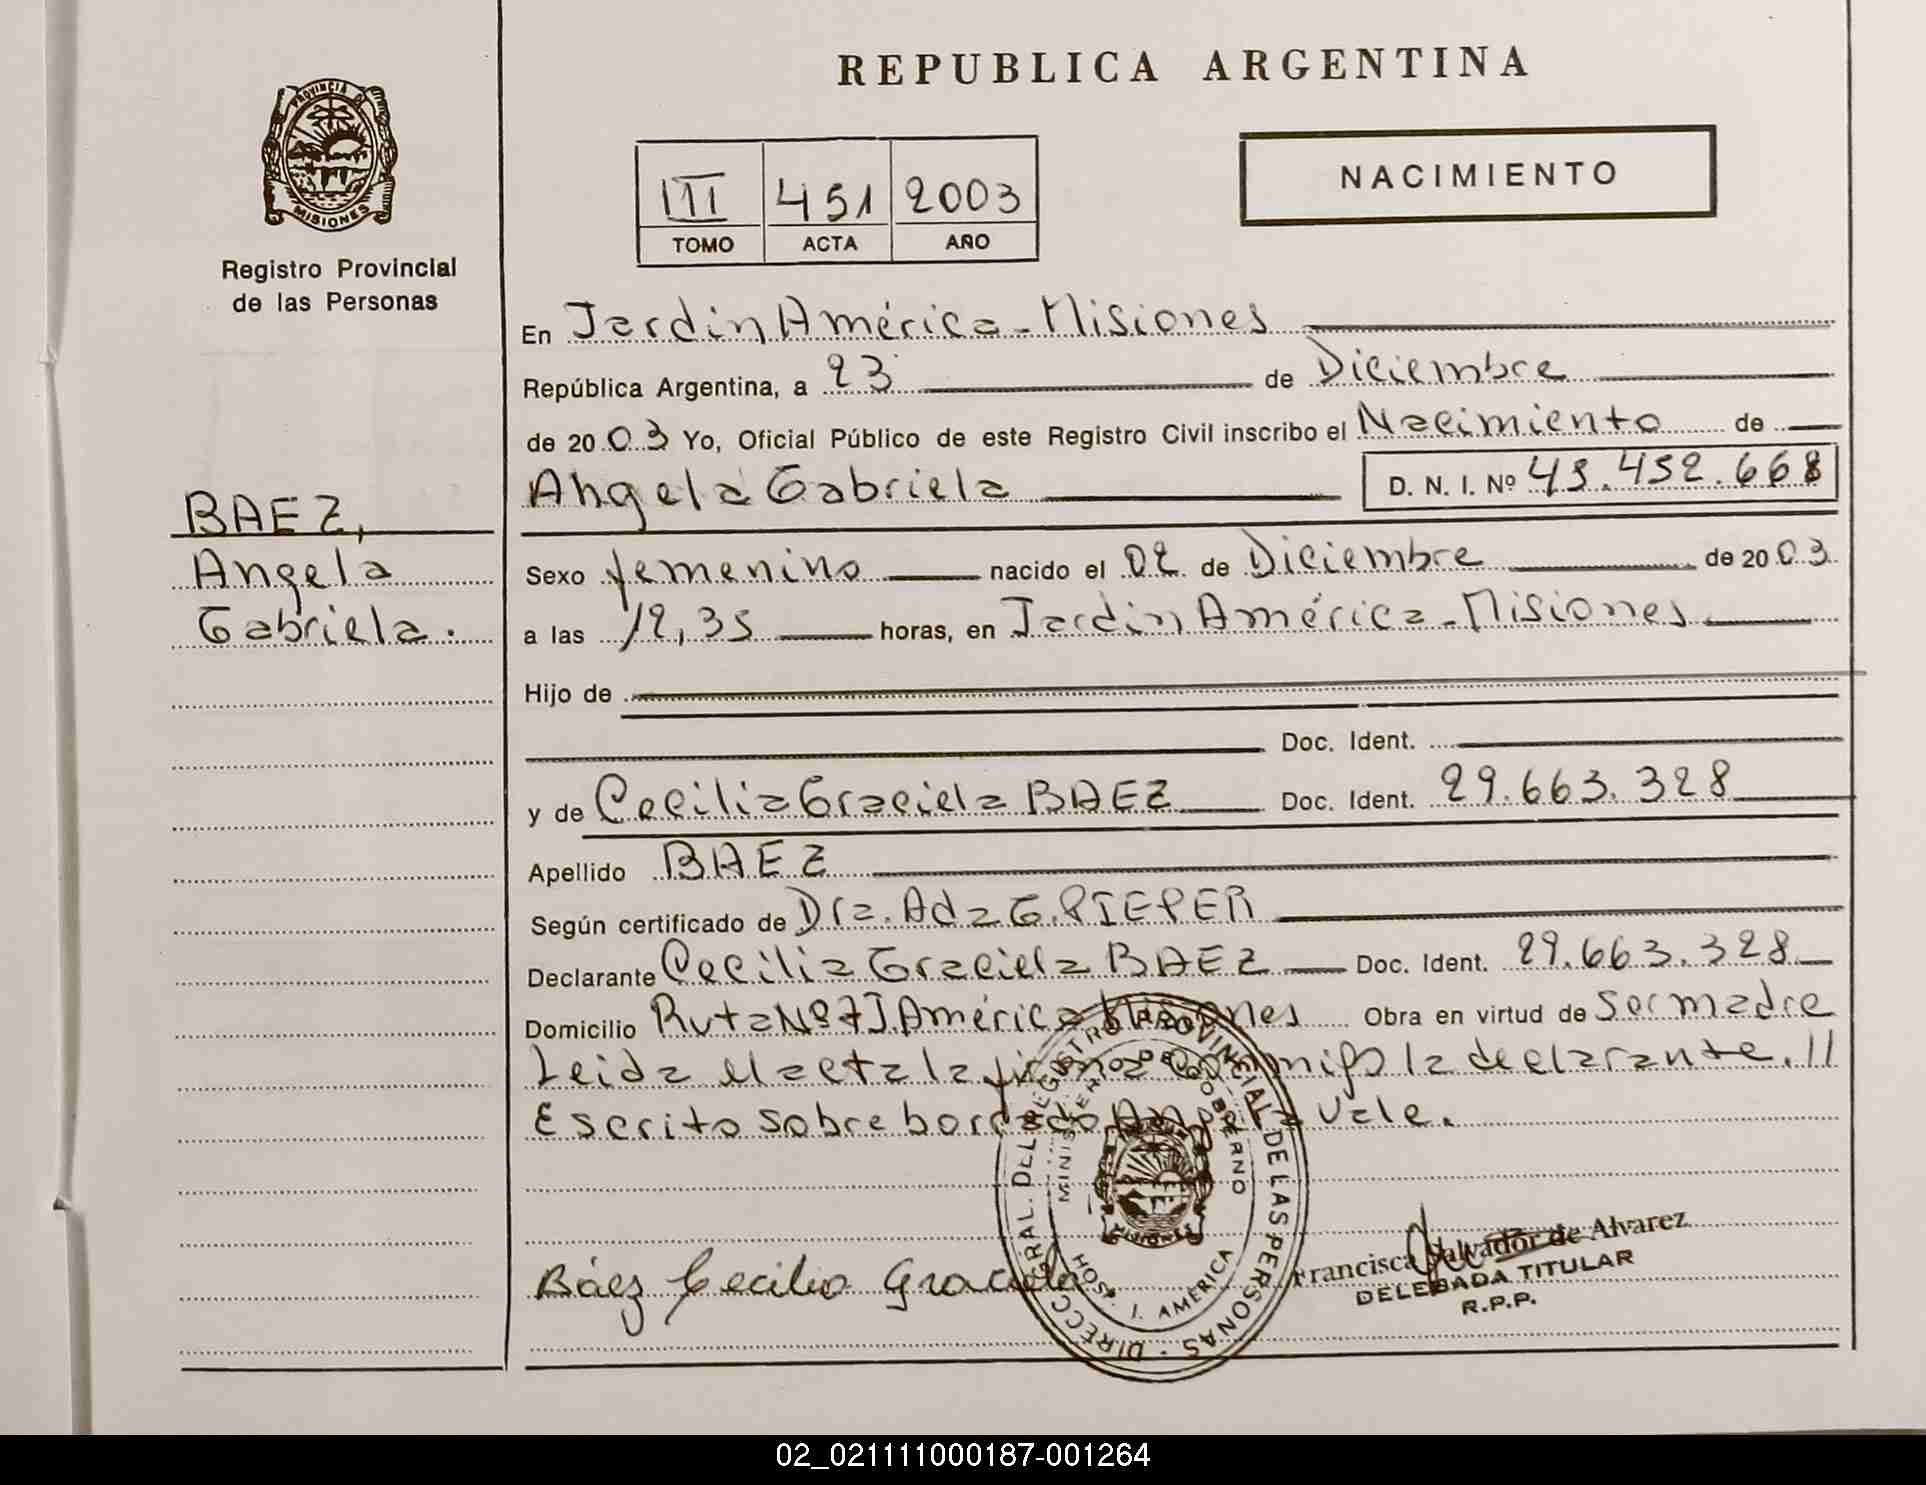 REPUBLICA ARGENTINA
PROVINCIA DE
MISIONES
Registro Provincial
de las Personas
III 451 2003
TOMO ACTA AÑO
NACIMIENTO
BAEZ,
Angela
Gabriela.
En Jardin América - Misiones
República Argentina, a 23 de Diciembre
de 20 03 Yo, Oficial Público de este Registro Civil inscribo el Nacimiento de
Angela Gabriela D. N. I. Nº 45.452.668
Sexo femenino nacido el 02 de Diciembre de 20 03
a las 12,35 horas, en Jardin América - Misiones
Hijo de
Doc. Ident.
y de Cecilia Graciela BAEZ Doc. Ident. 29.663.328
Apellido BAEZ
Según certificado de Dra. Ada G. PIEPER
Declarante Cecilia Graciela BAEZ Doc. Ident. 29.663.328
Domicilio Ruta Nº 7 J. América Misiones Obra en virtud de Ser madre
Leida el acta la firma conmigo la declarante. //
Escrito sobre borrado Angela Vale.
DIRECC. GRAL. DEL REGISTRO PROVINCIAL DE LAS PERSONAS
MINISTERIO DE GOBIERNO
MISIONES
HOS. J. AMERICA
Báez Cecilia Graciela
Francisca Salvador de Alvarez
DELEGADA TITULAR
R.P.P.
02_021111000187-001264